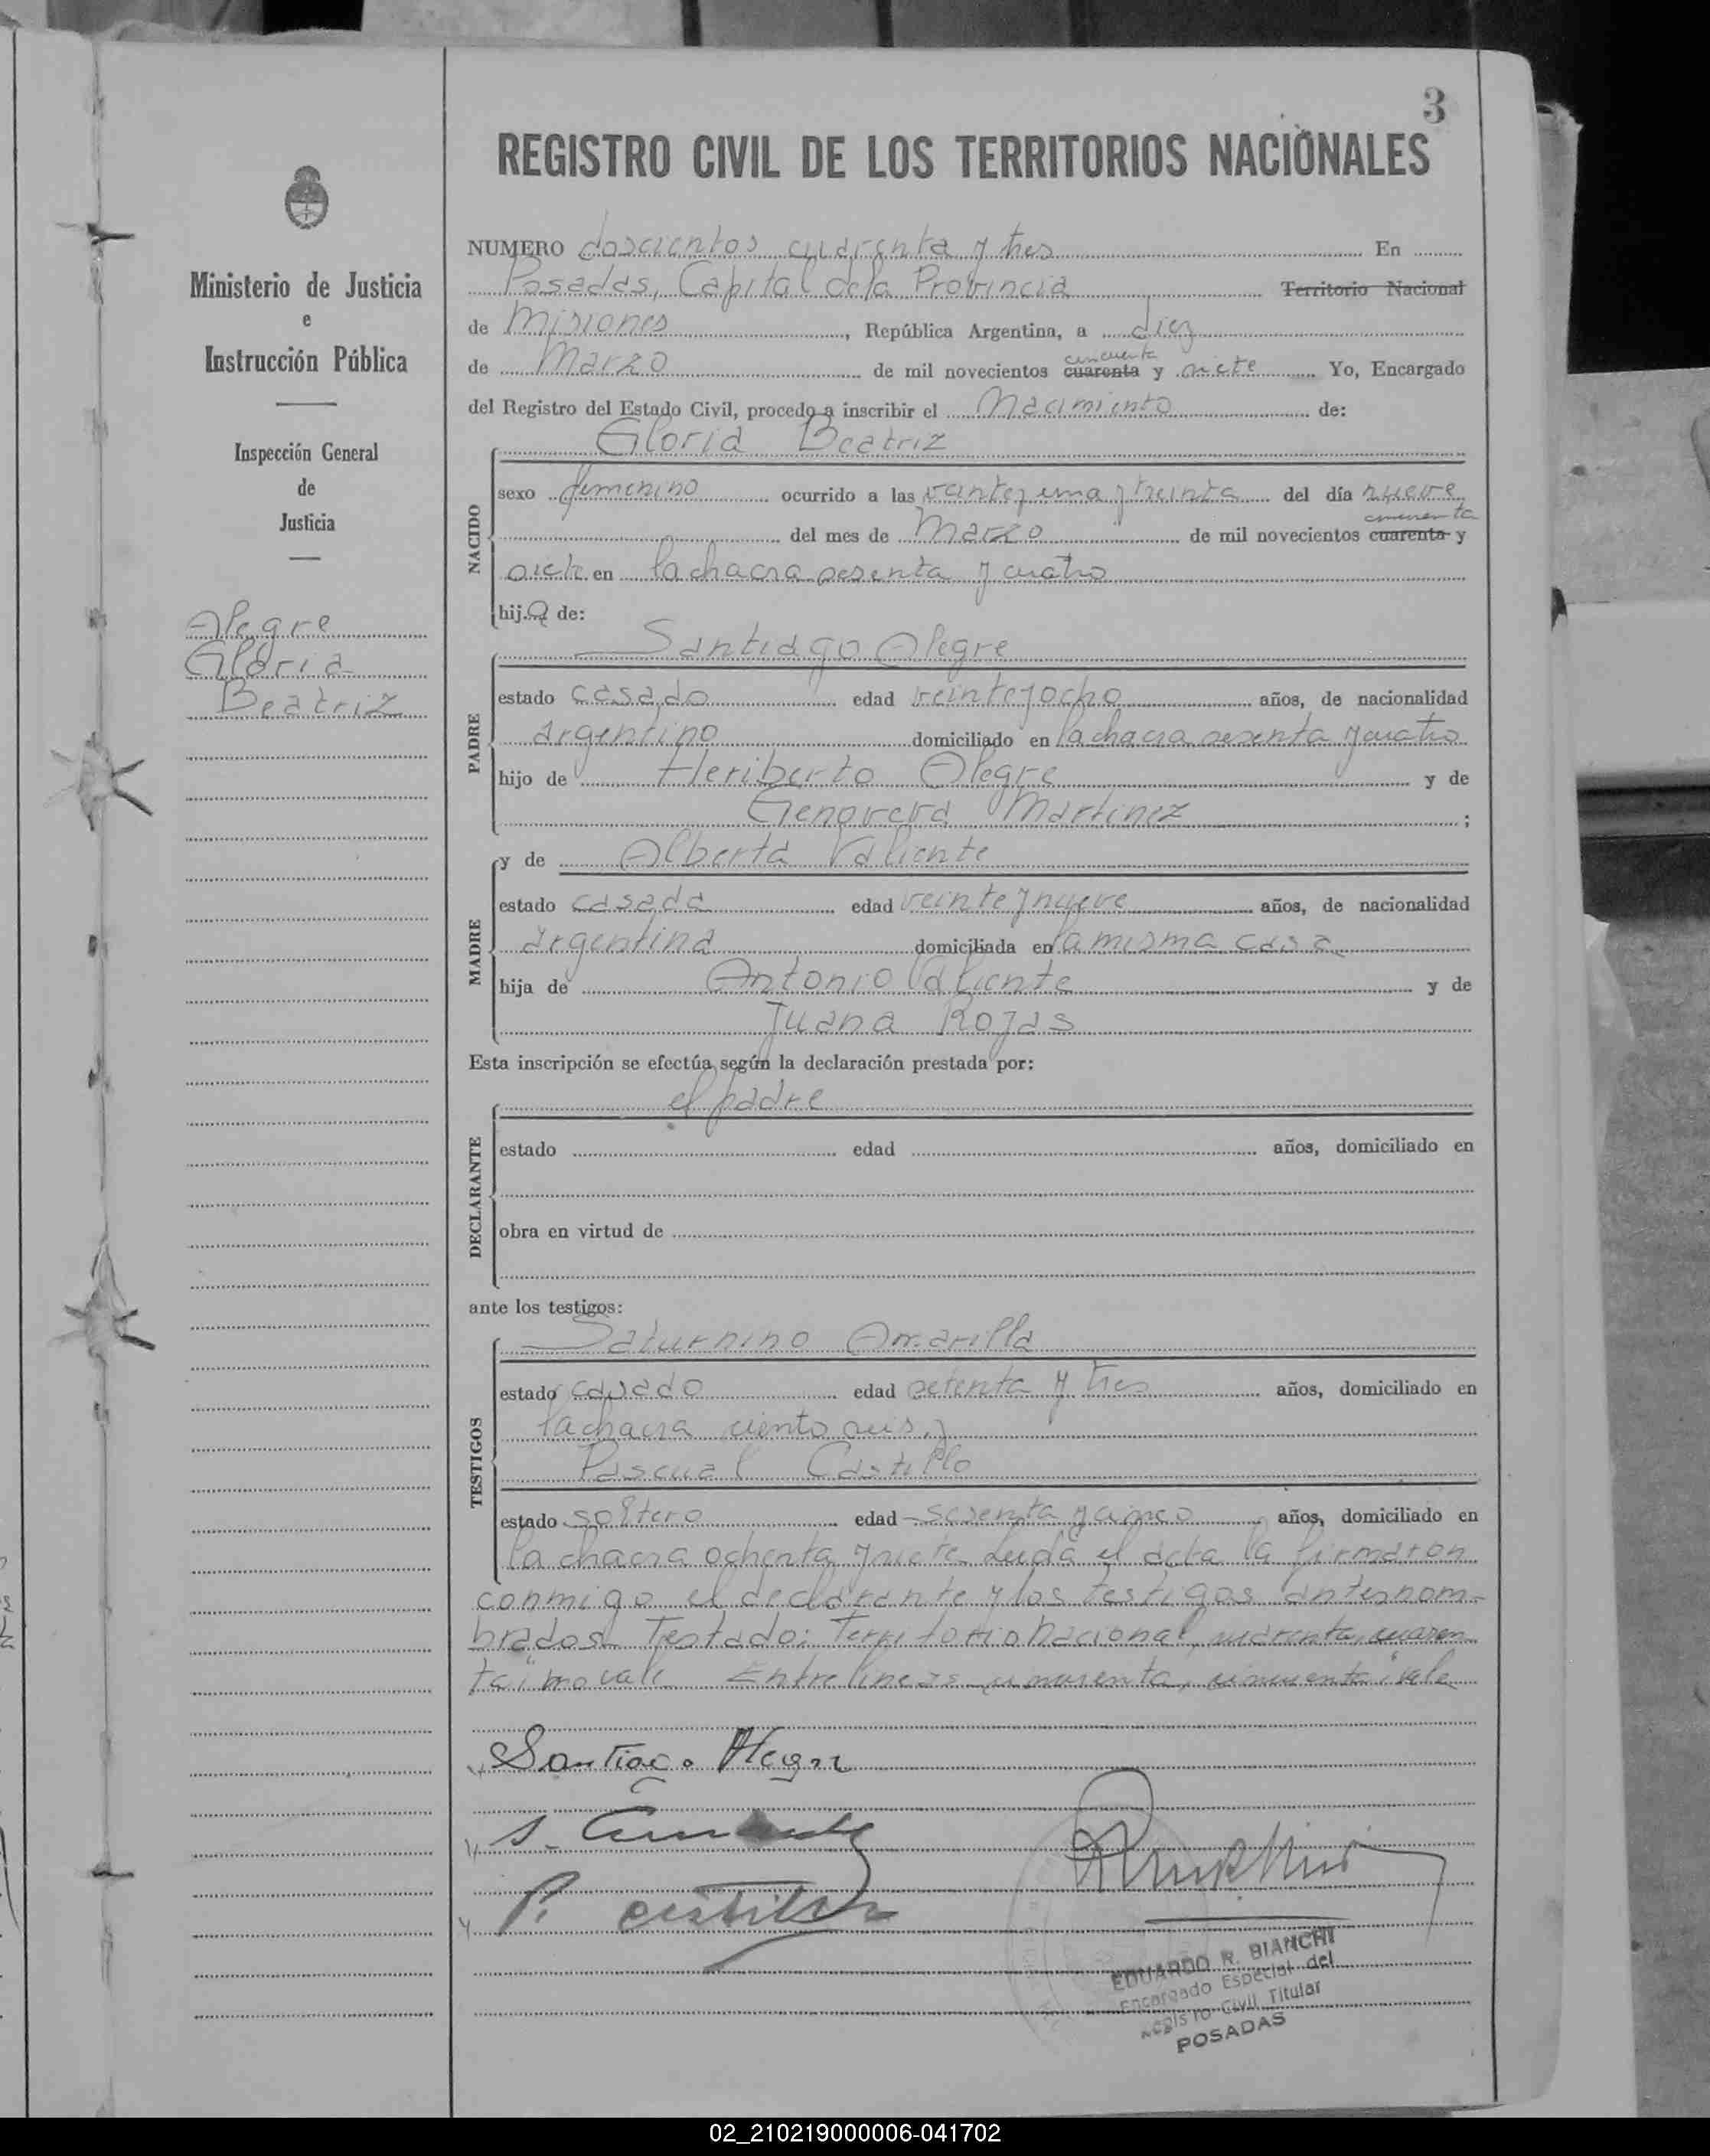 3
REGISTRO CIVIL DE LOS TERRITORIOS NACIONALES
Ministerio de Justicia
e
Instrucción Pública
Inspección General
de
Justicia
Alegre
Gloria
Beatriz
NUMERO doscientos cuarenta y tres En
Posadas, Capital de la Provincia Territorio Nacional
de Misiones, República Argentina, a diez
de Marzo de mil novecientos cuarenta cincuenta y siete Yo, Encargado
del Registro del Estado Civil, procedo a inscribir el Nacimiento de:
NACIDO
Gloria Beatriz
sexo femenino ocurrido a las veinte y una y treinta del día nueve
del mes de Marzo de mil novecientos cuarenta cincuenta y
siete en la chacra sesenta y cuatro
hija de:
PADRE
Santiago Alegre
estado casado edad veinte y ocho años, de nacionalidad
argentino domiciliado en la chacra sesenta y cuatro
hijo de Heriberto Alegre y de
Genoveva Martinez;
MADRE
y de Alberta Valiente
estado casada edad veinte y nueve años, de nacionalidad
argentina domiciliada en la misma casa
hija de Antonio Valiente y de
Juana Rojas
Esta inscripción se efectúa según la declaración prestada por:
DECLARANTE
el padre
estado edad años, domiciliado en
obra en virtud de
ante los testigos:
TESTIGOS
Saturnino Amarilla
estado casado edad setenta y tres años, domiciliado en
la chacra ciento seis, y
Pascual Castillo
estado soltero edad sesenta y cinco años, domiciliado en
la chacra ochenta y siete Leída el acta la firmaron
conmigo el declarante y los testigos antesnom-
brados Testado: Territorio Nacional, cuarenta, cuaren
ta: no vale Entre lineas cincuenta, cincuenta: vale
Santiago Alegre
P. Castillo
EDUARDO R. BIANCHI
Encargado Especial del
Registro Civil Titular
POSADAS
02_210219000006-041702